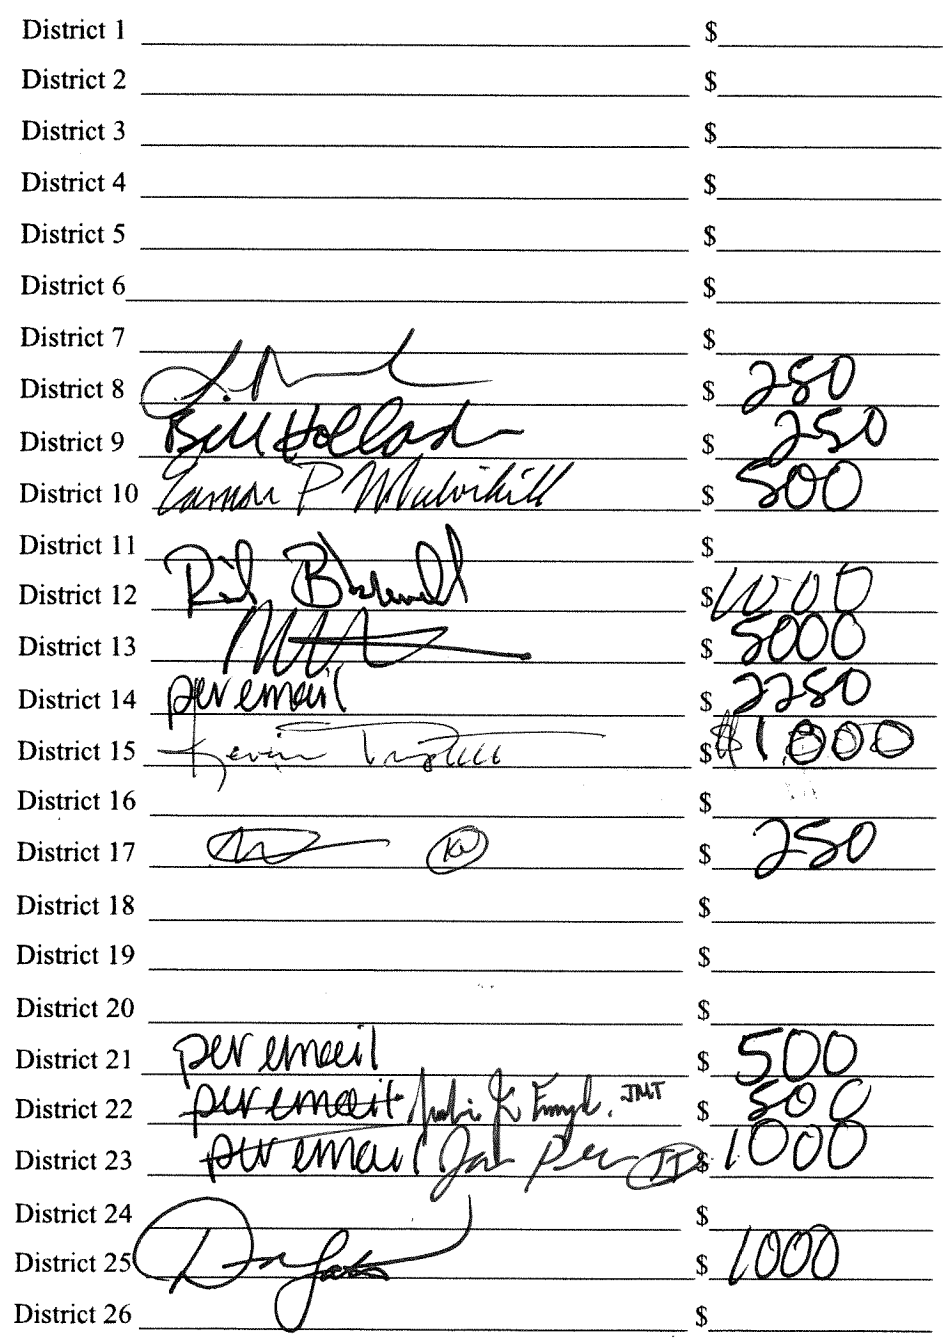 District 1 $
District 2 $
District 3 $
District 4 $
District 5 $
District 6 $
District 7 $
District 8 $ 250
District 9 Bill Hollad $ 250
District 10 Eamon P Mulvihill $ 500
District 11 $
District 12 $ 1000
District 13 $ 5000
District 14 per email $ 2250
District 15 Kevin $ $1,000
District 16 $
District 17 KW $ 250
District 18 $
District 19 $
District 20 $
District 21 per email $ 500
District 22 per email JMT $ 500
District 23 per email JT $ 1000
District 24 $
District 25 $ 1000
District 26 $